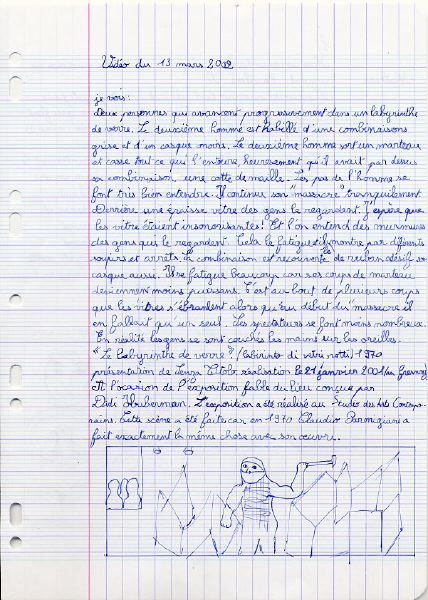 Vidéo du 13 mars 2012
je vois :
Deux personnes qui avancent progressivement dans un labyrinthe
de verre. Le deuxième homme est habillé d'une combinaisons
grise et d'un casque moins. Le deuxième homme sort un marteau
et casse tout ce qui l'entoure heuresement qu'il avait par dessus
sa combinaison une cotte de maille. Les pas de l'homme se
font très bien entendre. Il continue son "massacre" tranquilement
Derrière une épaisse vitre des gens le regardent. J'espère que
les vitre étaient insonorisantes! Et l'on entend des murmures
des gens qui le regardent. Cela le fatigue il montre par différents
soupirs et arrêts. Sa combinaison est recouverte de ruban adésif son
casque aussi. Une fatigue beaucoup car ses coups de marteau
deviennent moins puissans. C'est au bout de plusieurs coups
que les vitres s'ébranlent alors qu'au début du "massacre" il
en fallait qu'un seul. Les spectateurs se font moins nombreux.
En réalité les gens se sont couchés les mains sur les oreilles.
"Le labyrinthe de verre" (labirinto di vetri rotti) 1970
présentation de réalisation le 21 janvier 2001
A l'ocasion de l'exposition fable du lieu conçue par
Didi Huberman. L'exposition a été réalisé au Studio des Arts Contempo-
rains. Cette scène a été faite car en 1970 Claudio Parmiggiani a
fait exactement la même chose avec son oeuvre.